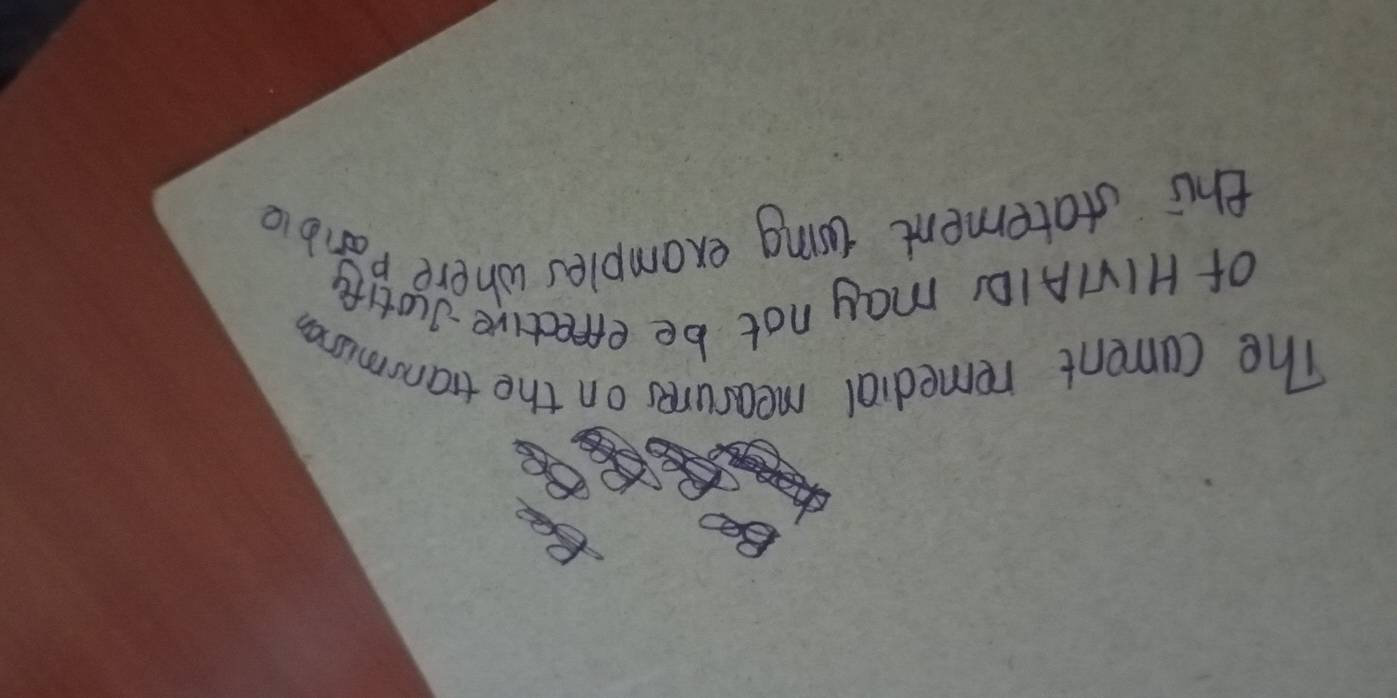 Bee
Bee
The current remedial measures on the transmission
of HIV/AIDs may not be effective - Justify
this statement using examples where possible